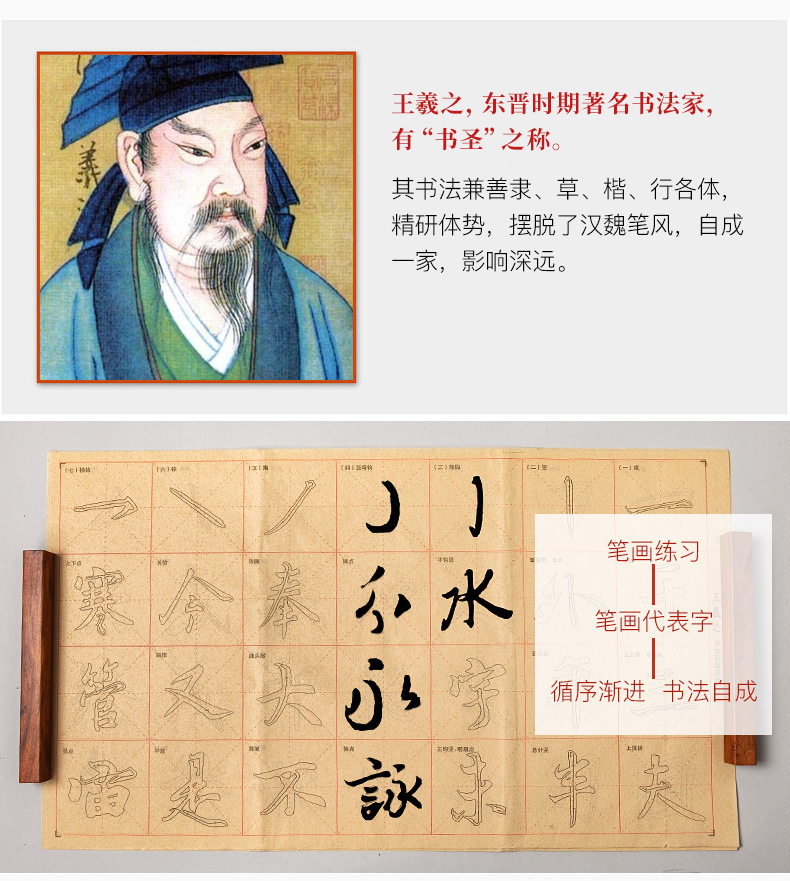 王羲之，东晋时期著名书法家，
有“书圣”之称。
其书法兼善隶、草、楷、行各体，
精研体势，摆脱了汉魏笔风，自成
一家，影响深远。
義
笔画练习
笔画代表字
循序渐进 书法自成
(七)横钩 (六)捺 (五)撇 (三)竖钩 (二)竖
寒 个 奉 分 水 外
管 又 大 永 字
宙 是 不 詠 未 半 夫